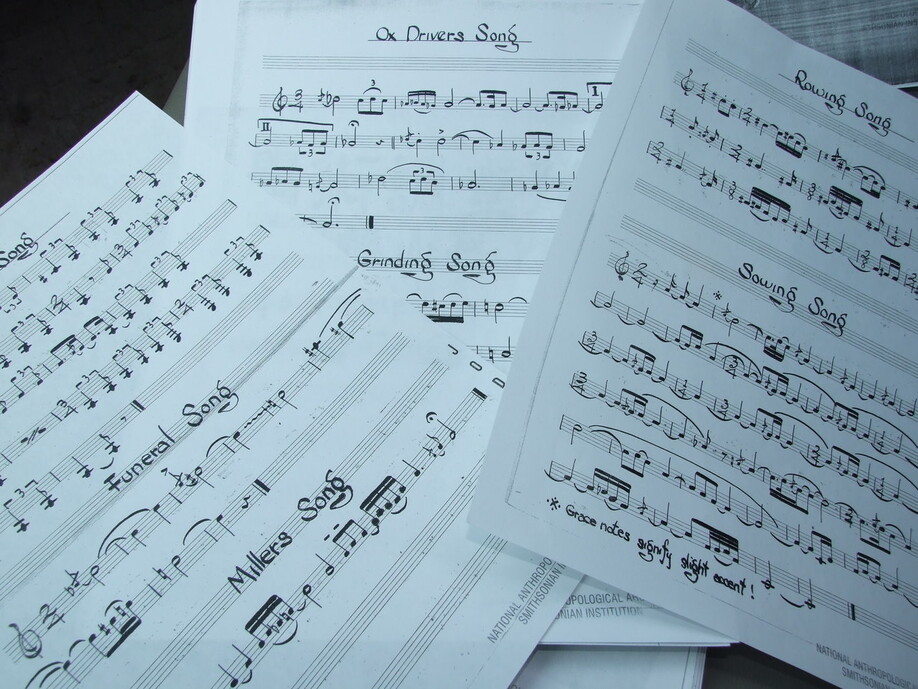 Ox Drivers Song
3
I
II
3
3
3
Grinding Song
Rowing Song
Sowing Song
*
* Grace notes signify slight accent!
NATIONAL ANTHROPOLOGICAL
SMITHSONIAN
Song
Funeral Song
Millers Song
NATIONAL ANTHROPO
SMITHSONIAN INS
OPOLOGICAL AR
ONIAN INSTITUTION